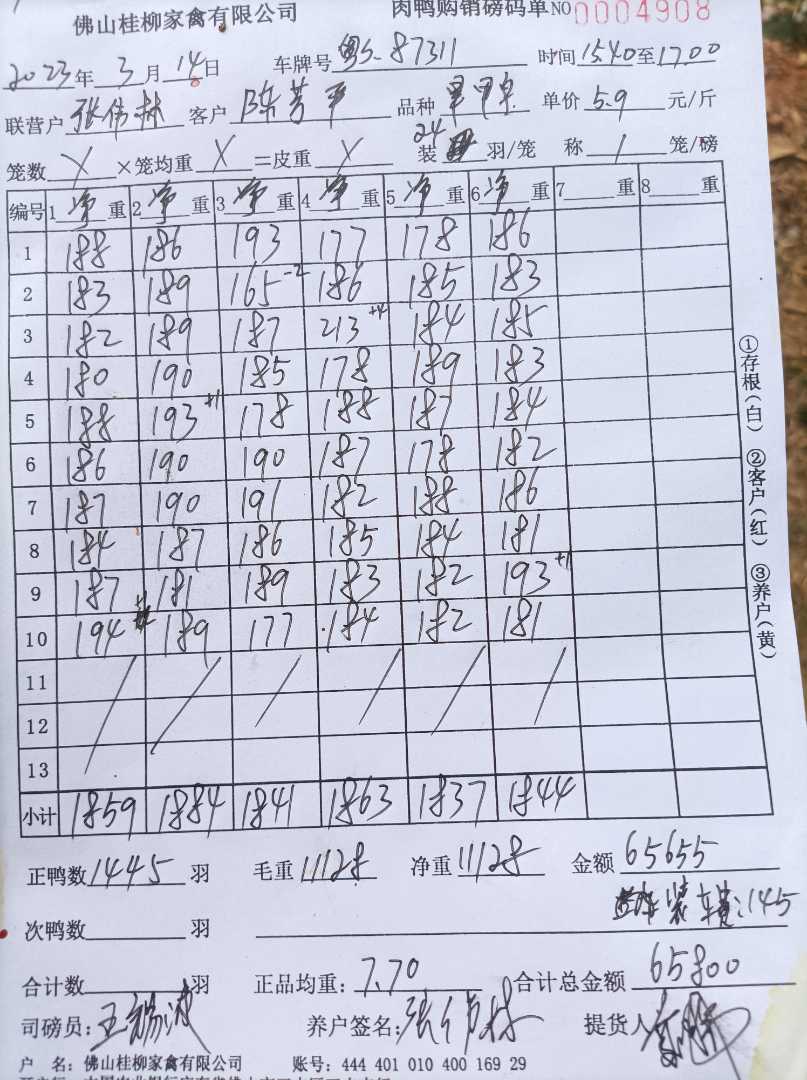 佛山桂柳家禽有限公司 肉鸭购销磅码单 NO 0004908
2023年 3月 14日 车牌号 粤S-87311 时间 15.40 至 17.00
联营户 张伟林 客户 陈芳平 品种 单价 5.9 元/斤
笼数 X ×笼均重 X =皮重 X 24 装 羽/笼 称 1 笼/磅
编号 1 净 重 2 净 重 3 净 重 4 净 重 5 净 重 6 净 重 7 重 8 重
1 188 186 193 177 178 186
2 183 189 165 -2 186 185 183
3 182 189 187 213 +4 184 185
4 180 190 185 178 189 183
5 188 193 +1 178 188 187 184
6 186 190 190 187 178 182
7 187 190 191 182 188 186
8 184 187 186 185 184 181
9 187 181 189 183 182 193 +1
10 194 189 177 184 182 181
11
12
13
小计 1859 1884 1841 1863 1837 1844
正鸭数 1445 羽 毛重 11128 净重 11128 金额 65655
装车费:145
次鸭数 羽
合计数 羽 正品均重: 7.70 合计总金额 65800
司磅员: 养户签名: 张伟林 提货人
户 名: 佛山桂柳家禽有限公司 账号: 444 401 010 400 169 29
①存根(白) ②客户(红) ③养户(黄)